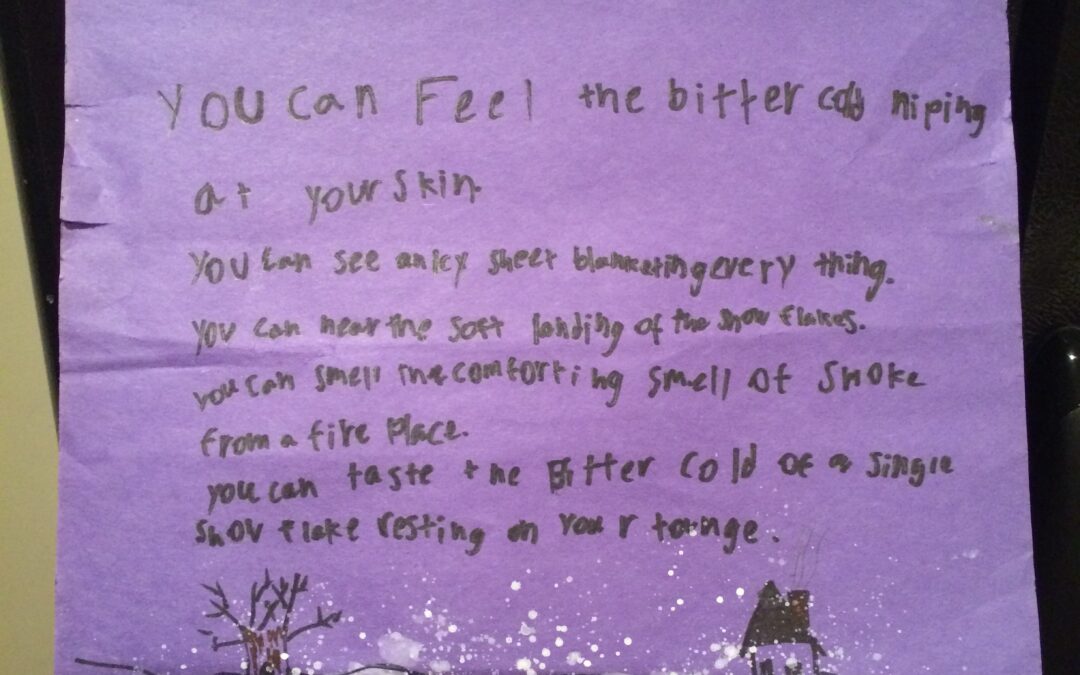 You can Feel the bitter cold niping
at your skin.
You can see an icy sheet blanketing every thing.
You can hear the soft landing of the snow flakes.
you can smell the comforting smell of smoke
from a fire place.
you can taste the Bitter cold of a single
snow flake resting on your tounge.